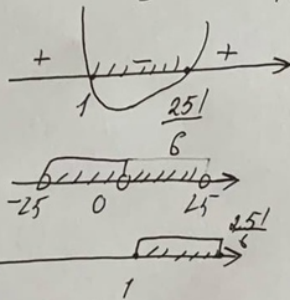 + - +
1 251/6
-25 0 25
251/6
1